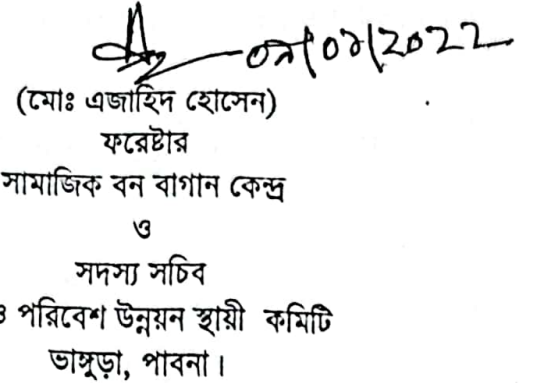 (মোঃ এজাহিদ হোসেন)
ফরেষ্টার
সামাজিক বন বাগান কেন্দ্র
ও
সদস্য সচিব
ও পরিবেশ উন্নয়ন স্থায়ী কমিটি
ভাঙ্গুড়া, পাবনা।